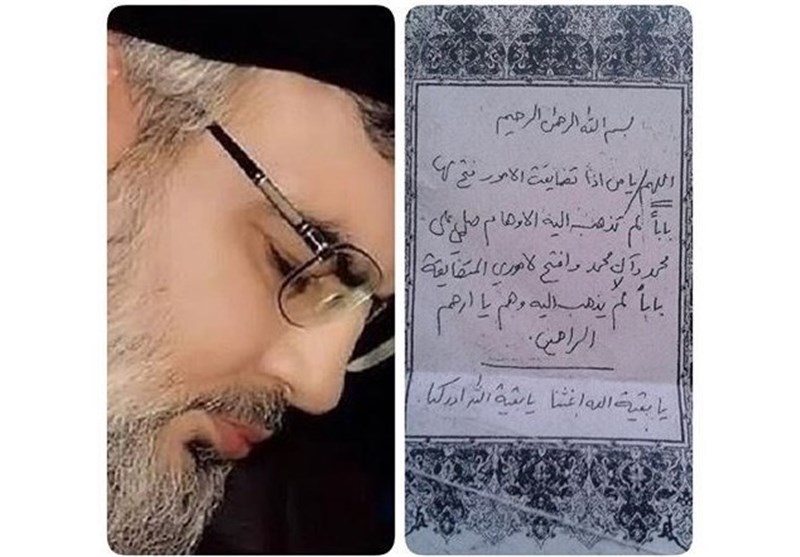 بسم الله الرحمن الرحيم
اللهم يا من اذا تضايقت الامور فتح لها
باباً لم تذهب اليه الاوهام صلي على
محمد وآل محمد وافتح لاموري المتضايقة
باباً لم يذهب اليه وهم يا ارحم
الراحمين.
يا بقية الله اغثنا يا بقية الله ادركنا.